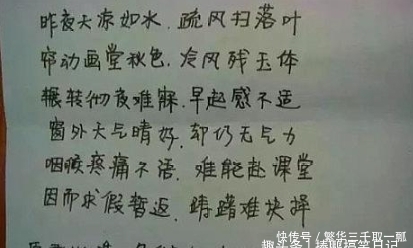 昨夜天凉如水.疏风扫落叶
帘动画堂秋色.冷风残玉体
辗转彻夜难寐.早起感不适
窗外天气晴好,却仍无气力
咽喉疼痛不语.难能赴课堂
因而求假暂返.踌躇难抉择
快传号/繁华三千取一瓢